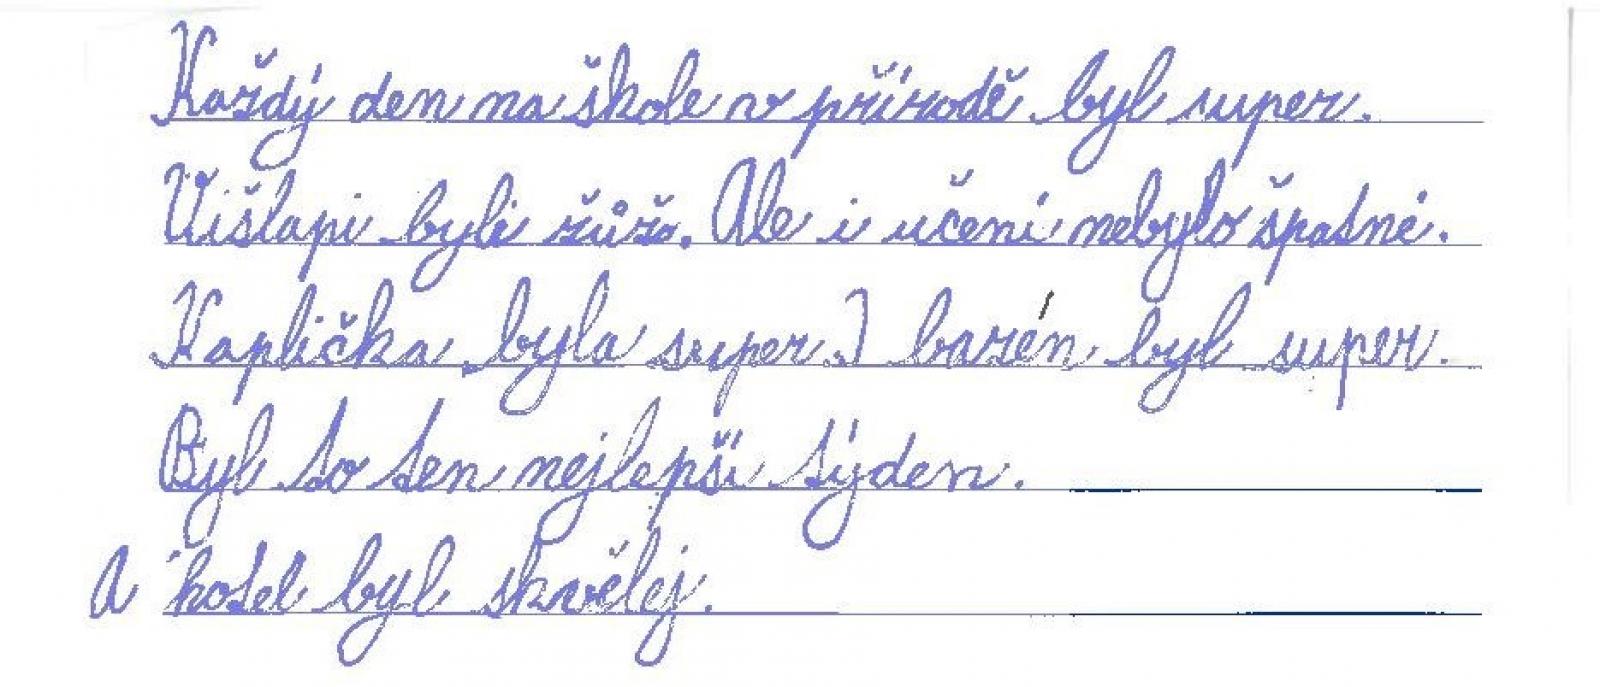 Každý den na škole v přírodě byl super.
Višlapi byli žůžo. Ale i učení nebylo špatné.
Kaplička byla super. I bazén byl super.
Byl to ten nejlepší týden.
A hotel byl skvělej.